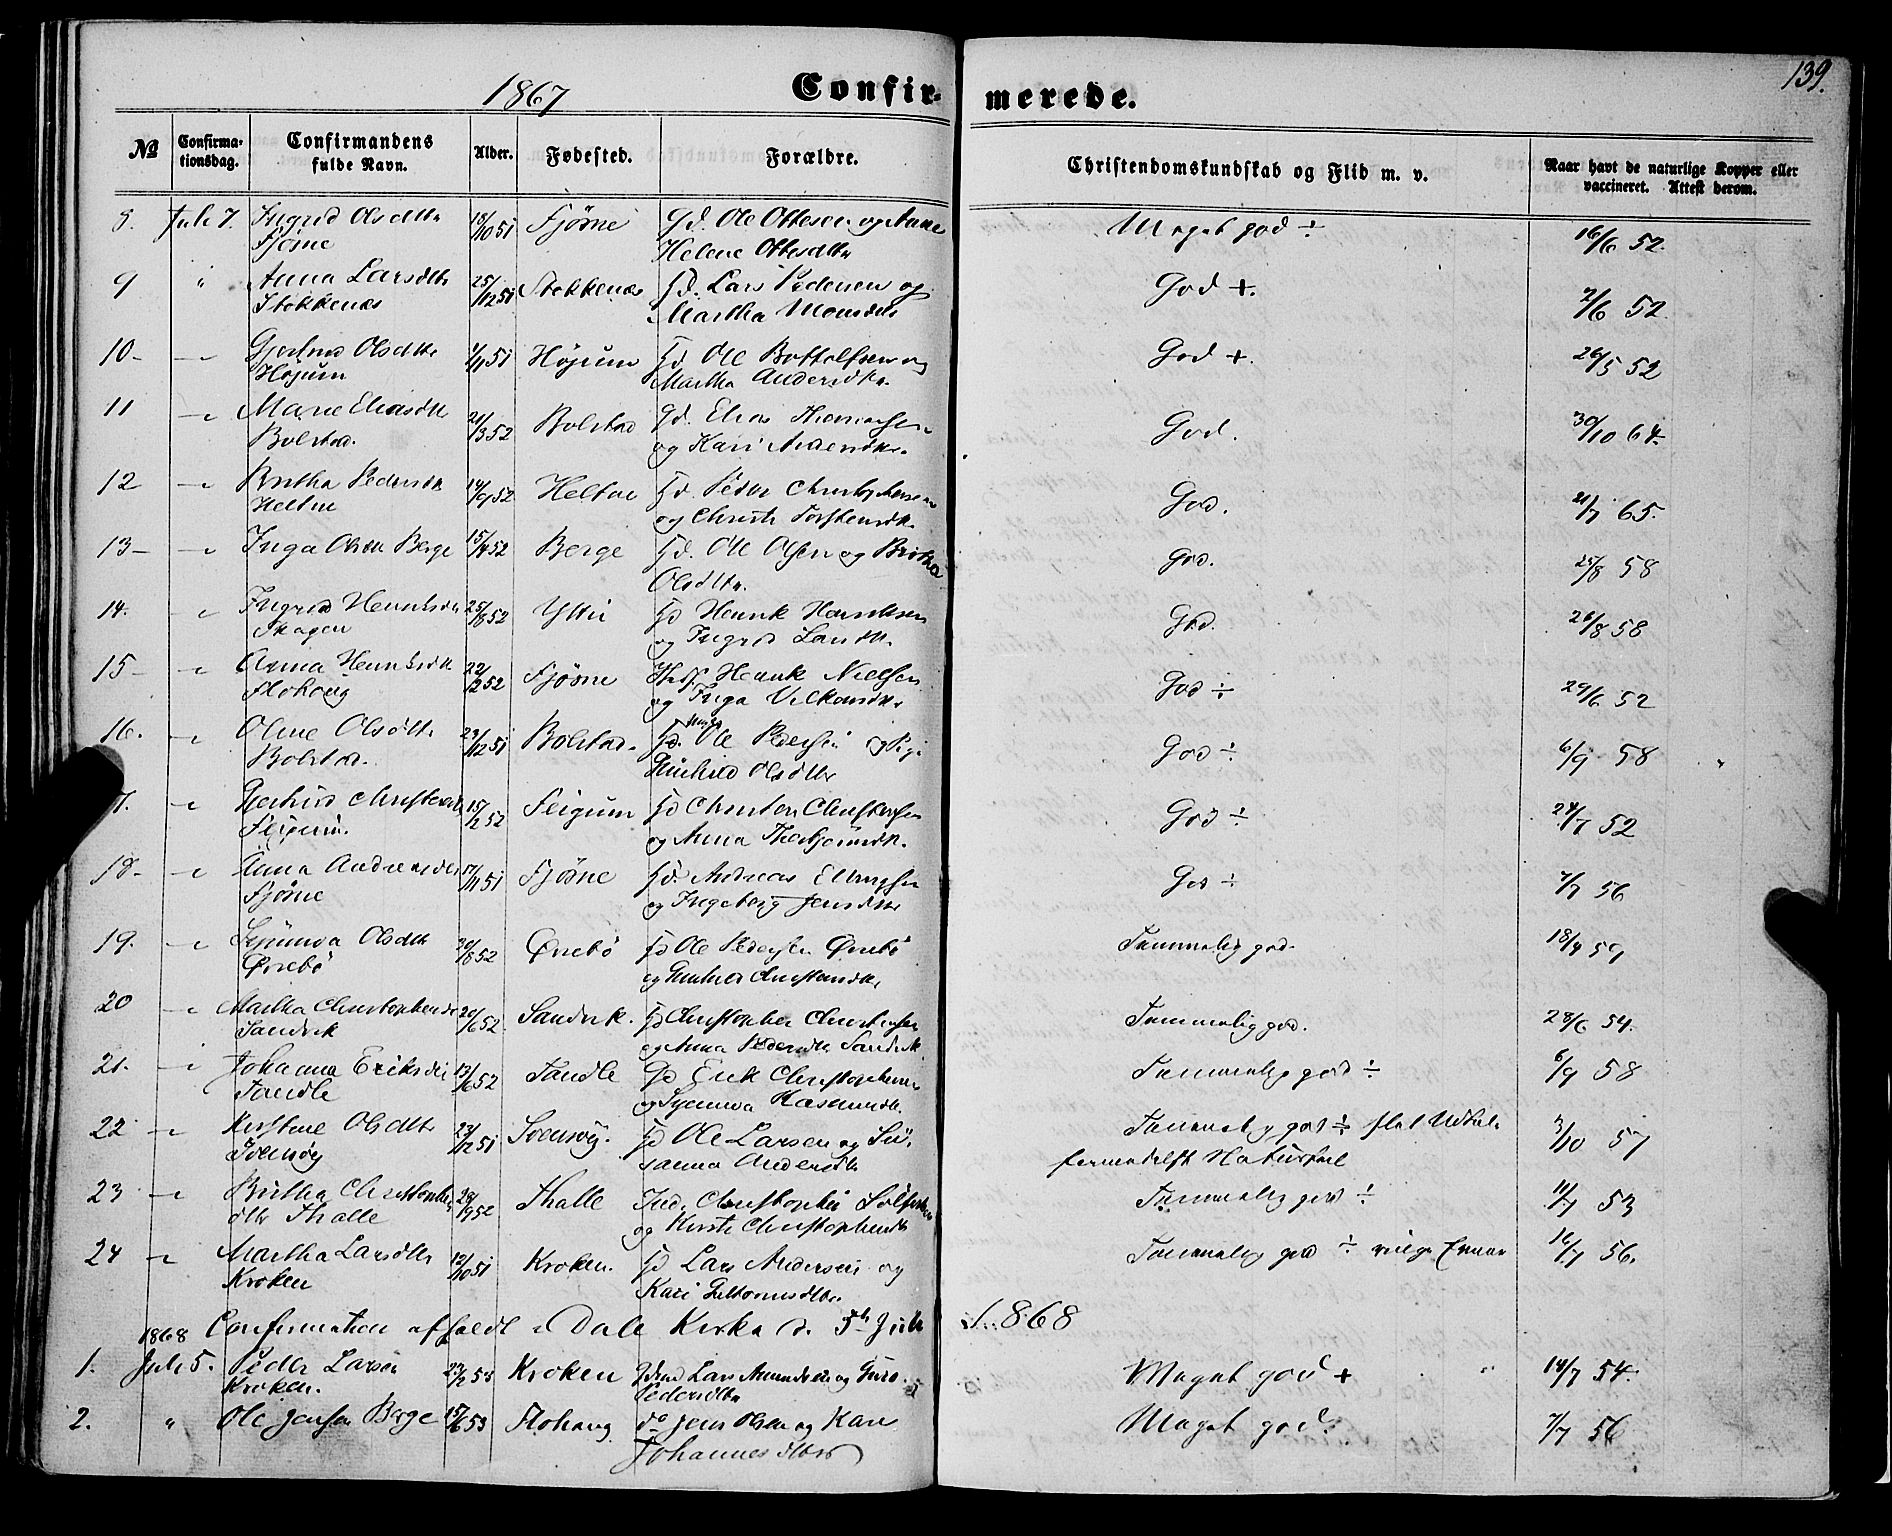 139.
1867 Confirmerede.
№ Confirmationsdag. Confirmandens fulde Navn. Alder. Fødested. Forældre. Christendomskundskab og Flid m. v. Naar havt de naturlige Kopper eller vaccineret. Attest derom.
8. Juli 7. Ingrid Olsdtr 18/10 51 Fjøsne Gd. Ole Ottesen og Anne Meget god ÷ 16/6 52.
Fjøsne Helene Ottesdtr
9 " Anna Larsdtr 25/12 51 Stokkenæs Gd. Lars Pedersen og God +. 2/6 52.
Stokkenæs Martha Monsdtr
10- Gjertrud Olsdtr 1/11 51 Højum Gd. Ole Bottolfsen og God +. 26/5 52
Højum Martha Andersdtr.
11 Marie Eliasdtr 21/3 52 Bolstad Gd. Elias Thomassen God. 30/10 64.
Bolstad. og Kari Andersdtr.
12 Brithe Pedersdtr 14/9 52 Heltne Gd. Peder Christophersen God. 21/7 65.
Heltne og Christi Torstensdtr.
13- Inga Olsdtr Berge 15/4 52 Berge Gd. Ole Olsen og Britha God. 25/8 58
Olsdtr.
14. Ingrid Henriksdtr 25/8 52 Ytri Gd Henrik Henriksen God. 26/8 58
Skagen og Ingrid Larsdtr.
15 Anna Henriksdtr 22/12 52 Fjøsne Henrik Nielsen God ÷ 29/6 52
Flohoug og Inga
16. Oline Olsdtr 29/12 51 Bolstad. Ole Pedersen og God ÷ 6/9 58
Bolstad. Gunhild Olsdtr
17. Gertrud Christensdtr 15/2 52 Feigum Gd Christen Christensen God ÷ 24/7 52
Feigum. og Anna Thorbjørnsdtr.
18- Anna Andreasdtr 17/11 51 Fjøsne Gd. Andreas Ellingsen God ÷ 7/7 56
Fjøsne og Ingeborg Jensdtr
19. Synneva Olsdtr 20/8 52 Ørrebø Gd Ole Pedersen Ørrebø Temmelig god. 18/9 59
Ørrebø og Gertrud Christensdtr.
20 Martha Christophersdtr 20/6 52 Sandvik. Gd Christopher Christensen Temmelig god. 28/6 54.
Sandvik og Anna Pedersdtr Sandvik
21. Johanna Eriksdtr 13/6 52 Tandle Gd Erik Christophersen Temmelig god ÷ 6/9 58
Tandle og Synneva Rasmusdtr.
22 Kirstine Olsdtr 23/12 51 Svensøy. Gd Ole Larsen og Su- Temmelig god ÷ 3/10 57
Svensøy sanna Andersdtr Naturfeil
23 Britha Christopher- 28/9 52 Thalle Ind. Christopher og Temmelig god ÷ 11/7 53
dtr Thalle og Kirsti Christophersdtr
24 Martha Larsdtr 12/10 51 Kroken. Gd Lars Andersen og Temmelig god ÷ 16/7 56.
Kroken Kari Guttormsdtr
Confirmation afholdt i Dale Kirke d. 5te Juli 1868
1868
1. Juli 5. Peder Larsen 22/2 53 Kroken Lars Amundsen og Guro Meget god + 14/7 54.
Kroken. Pedersdtr
2. " Ole Jensen Berge 15/6 53 Flohaug do Jens Olsen og Kari Meget god. 7/7 56
Johannesdtr